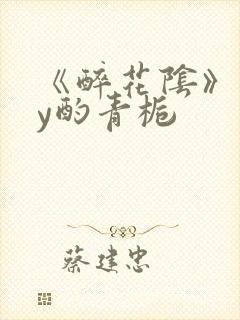 《醉花陰》
y酌青栀
蔡建忠